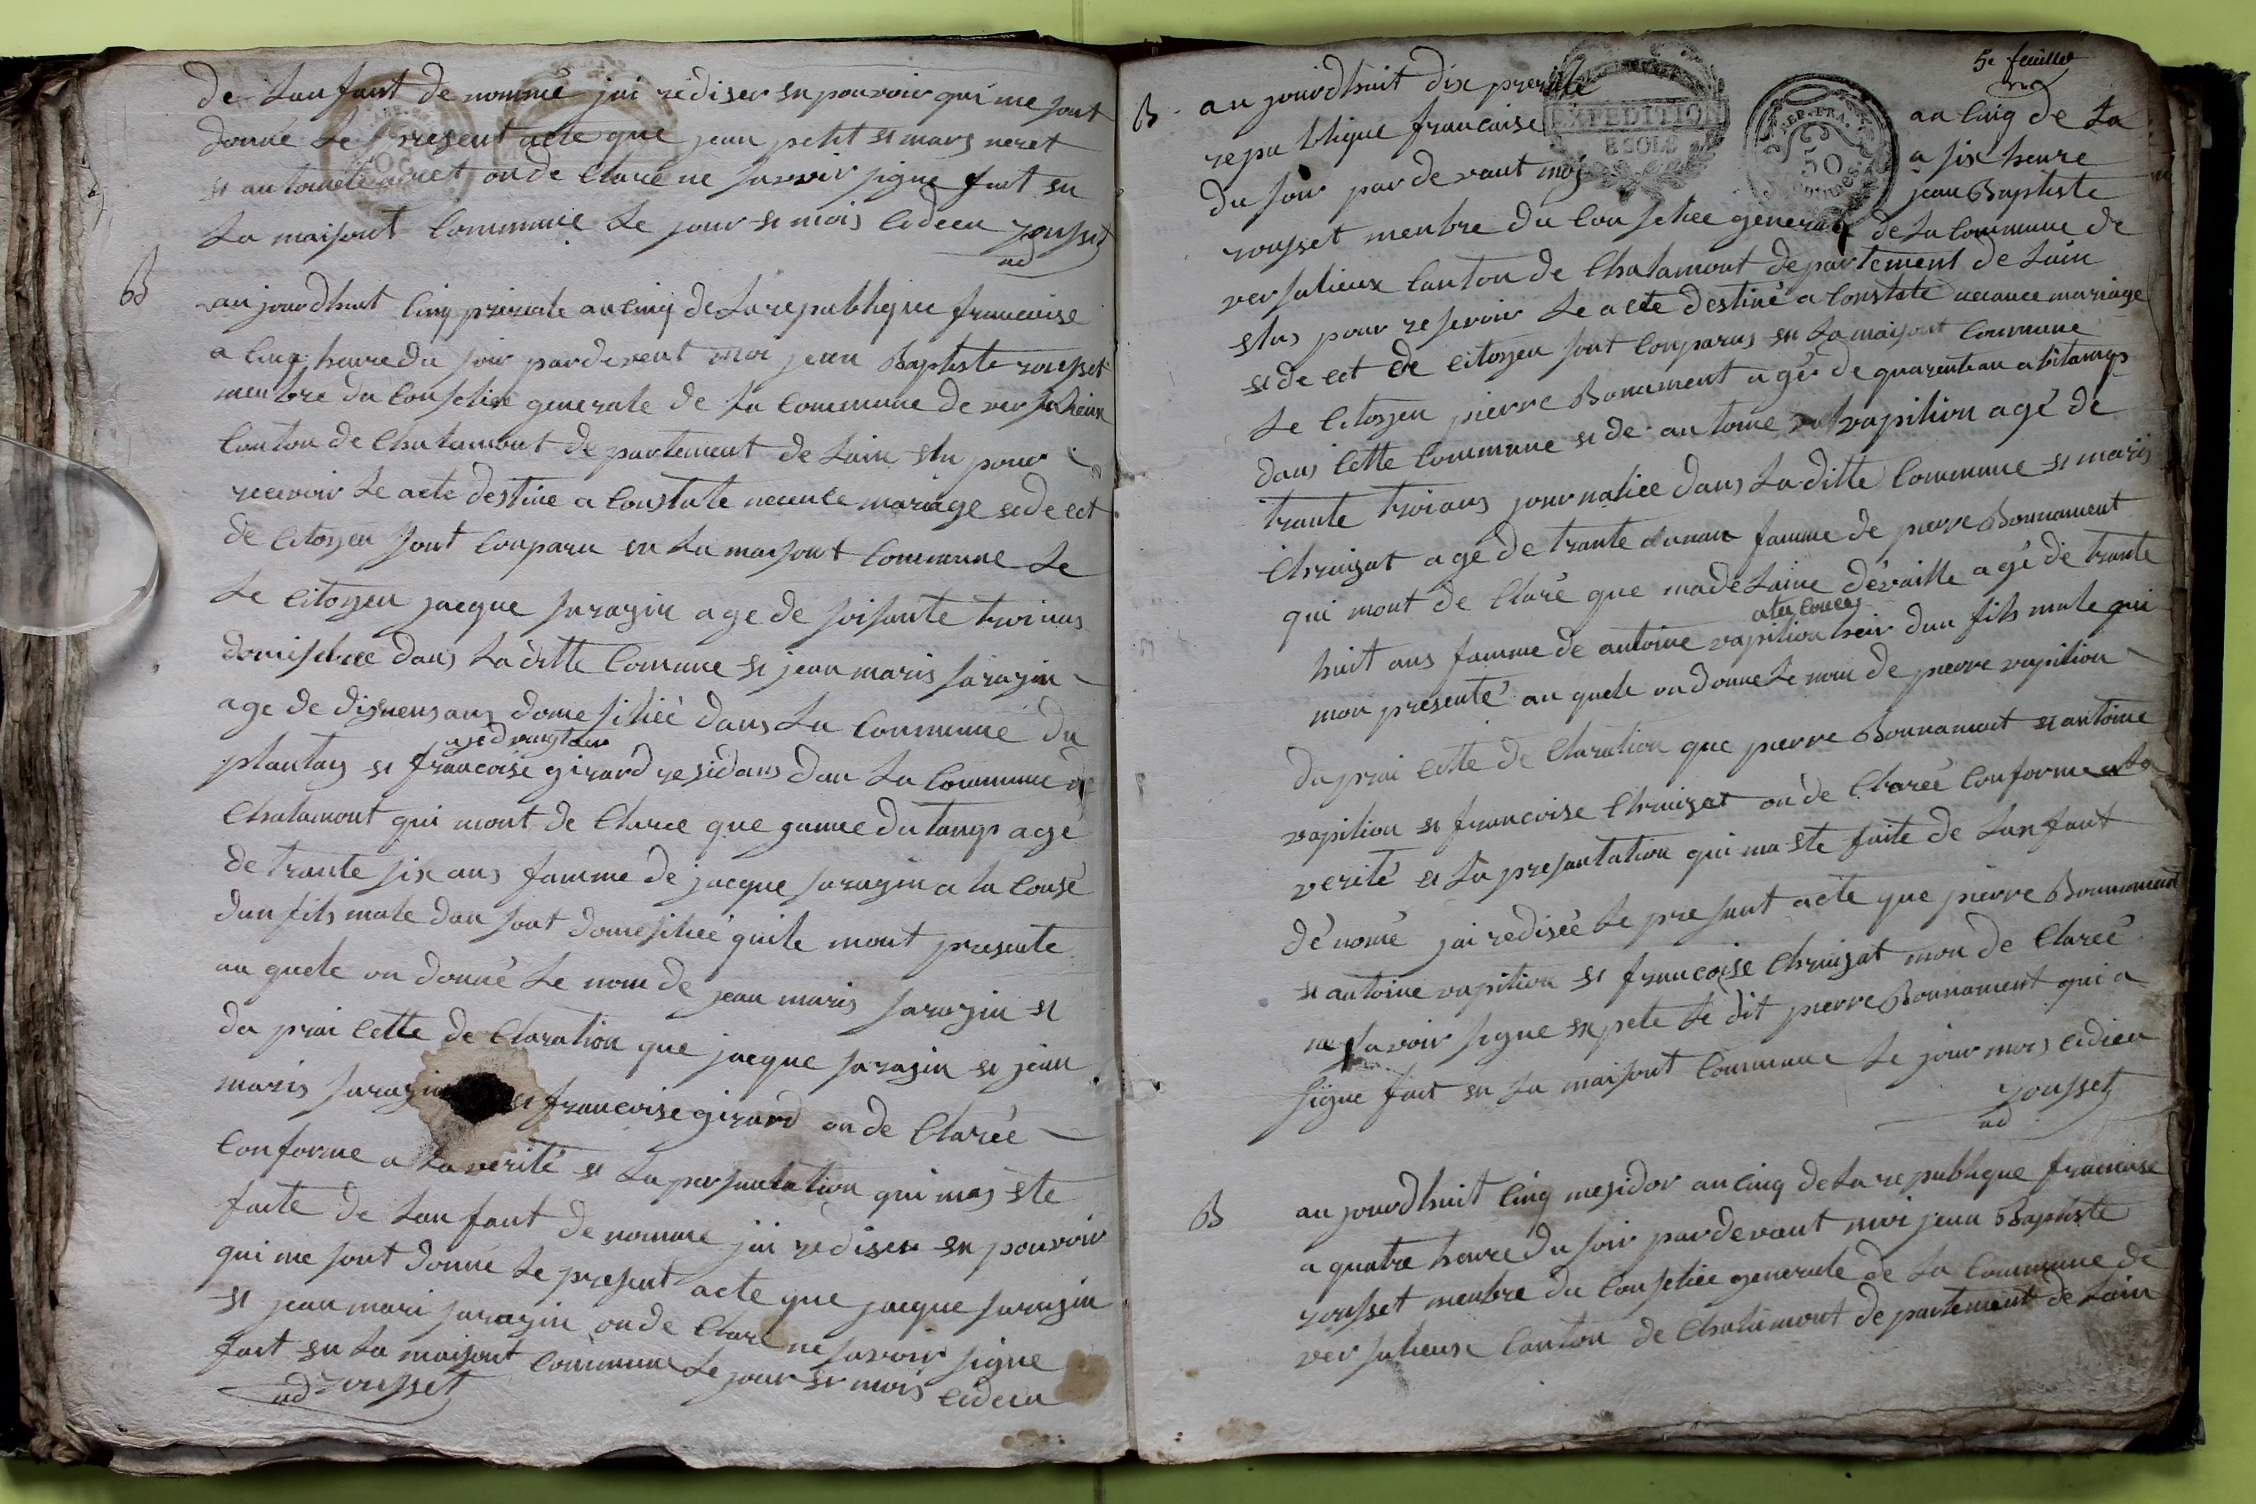 de Lanfant de nommé jai rediser en pouvoir qui me sont
donne Le present acte que jean petit et mary neret
et antoinete neret on de Claré ne savoir signe fait en
La maisont Commune Le jour et mois Cideçu rousset
ad
B
aujourdhuit Cinq prerialle an Cinq de La republique francaise
a Cinq heure du soir pardevent moi jean Baptiste rousset
menbre du Conseliee generale de La Commune de versalieux
Canton de Chatamont departement de Lain elu pour
recevoir Le acte destine a Constate necence mariage et de cet
de Citoyen sont Conparu en La maisont Commune Le
Le Citoyen jacque sarazin age de soisante troi ans
domisiliee dans La ditte Comune et jean maris sarazin
age de disneus ans domesiliee dans La Commune du
age d vingt ans
plantay et francoise girard residans dan La Commune de
Chatamont qui mont de Claree que janne du tamps age
de trante six ans famme de jacque sarazin a La Cousé
dun fils male dan sont domesiliee quile mont presente
au quele on donné Le nom de jean maris sarazin et
da prai Cette de Claration que jacque sarazin et jean
maris sarazin et francoise girard on de Claréé
Conforme a La verité et La persantation qui mas ete
faite de Lanfant de nomme jai rediser en pouvoir
qui me sont donné Le present acte que jacque sarazin
et jean mari sarazin on de Claré ne savoir signe
fait en La maisont Commune Le jour et mois Cideçu
rousset
ad
5e feuillet
B
au jourdhuit dix preriale an Cinq de La
republique francaise a six heure
du soir pardevant moi jean Baptiste
EXPEDITION
8 SOLS
REP. FRA.
50
rousset menbre du Conseliee generale de La Commune de
versalieux Canton de Chatamont departement de Lain
elus pour reservoir Le acte destiné a Constate necance mariage
et de cet de Citoyen sont Conparus en La maisont Commune
Le Citoyen pierre Bonnament agé de quarente an abitamps
dans Cette Commune et de antoine vapilion agé de
trante troi ans journaliee dans La ditte Commune et maris
Chruizat age de trante an famme de pierre Bonnament
qui mont de Claré que madeLaine dévaille agé de trante
huit ans famme de antoine vapilion atu Couce heir dun fils male qui
mon presenté au quele on donne Le nom de pierre vapilion
da prai Cette de Claration que pierre Bonnamant et antoine
vapilion et francoise Chruizat on de Claréé Conforme a La
verité et La presantation qui ma ete faite de Lanfant
dénomé jai redisée Le presant acte que pierre Bonnamant
et antoine vapilion et francoise Chruizat mon de Claréé
ne savoir signe expete Le dit pierre Bonnament qui a
signe fait en La maisont Commune Le jour mois Cidieu
rousset
ad
B
au jourdhuit Cinq mesidor an Cinq de La republique francaise
a quatre heure du soir pardevant moi jean Baptiste
rousset menbre du Conseliee generale de La Commune de
versalieux Canton de Chatamont departement de Lain